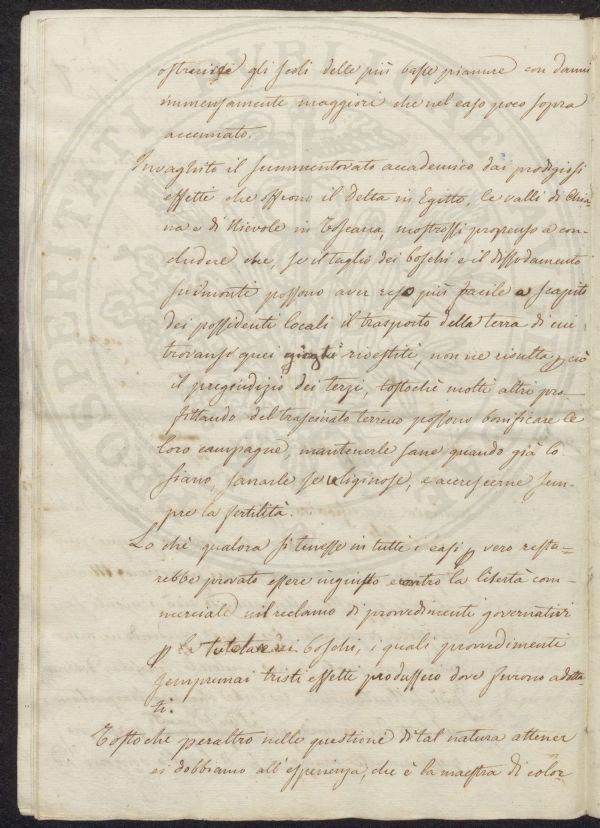 ostruirsi gli scoli delle più basse pianure con danni
immensamente maggiori che nel caso poco sopra
accennato.
Invaghito il summentovato accademico dai prodigiosi
effetti che offrono il Delta in Egitto, le valli di Chia-
na e di Nievole in Toscana, mostrossi propenso a con-
chiudere che, se il taglio dei boschi e il dissodamento
sui monti possono aver reso più facile a scapito
dei possidenti locali il trasporto della terra di cui
trovansi quei gioghi rivestiti, non ne risulta p ciò
il pregiudizio dei terzi, tostochè molti altri pro-
fittando del trascinato terreno possono bonificare le
loro campagne, mantenerle sane quando già lo
siano, sanarle se uliginose, e accrescerne sem-
pre la fertilità.
Lo chè qualora si tenesse in tutti i casi p vero reste-
rebbe provato essere ingiusto e contro la libertà com-
merciale il reclamo di provvedimenti governativi
p la tutela dei boschi, i quali provvedimenti
sempremai tristi effetti produssero dove furono adotta-
ti.
Tostochè peraltro nelle questioni di tal natura attener
ci dobbiamo all'esperienza, che è la maestra di color